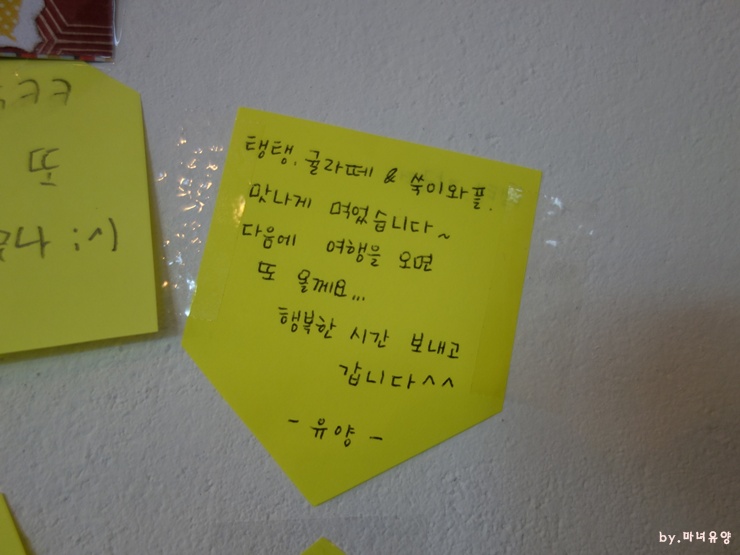 ㅋㅋ
또
:^(
탱탱, 귤라떼 & 쑥이와플.
맛나게 먹었습니다~
다음에 여행을 오면
또 올께요...
행복한 시간 보내고
갑니다^^
- 유양 -
by.마녀유양